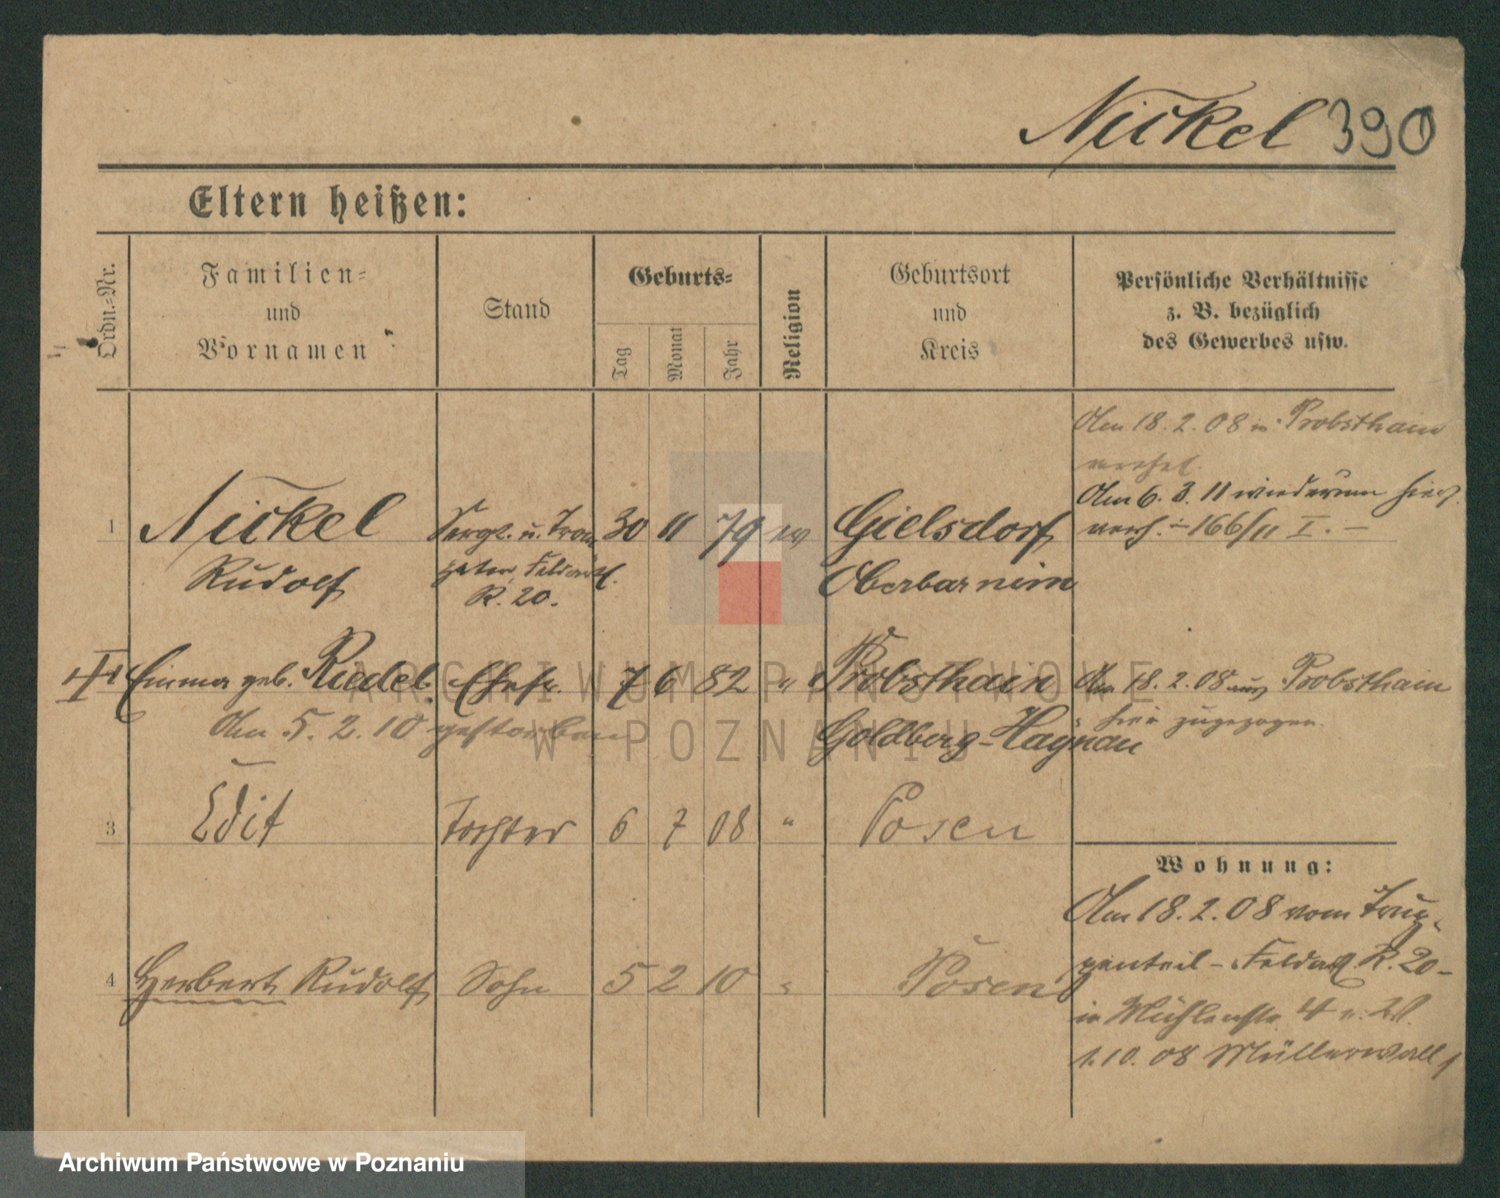 Nickel 390
Eltern heißen:
Ordn.-Nr.
Familien-
und
Vornamen
Stand
Geburts-
Tag
Monat
Jahr
Religion
Geburtsort
und
Kreis
Persönliche Verhältnisse
z. B. bezüglich
des Gewerbes usw.
Am 18. 2. 08 in Probsthain
verehel.
Am 6. 3. 11 wiederum hier
verh. 166/11 I. -
1 Nickel
Rudolf
Sergt. u. Trom
peter, Feldartl.
R. 20.
30 11 79 ev
Gielsdorf
Oberbarnim
Emma geb. Riedel. Ehefr. 7 6 82 " Probsthain
Goldberg-Haynau
Am 18. 2. 08 aus Probsthain
hier zugezogen.
Am 5. 2. 10 gestorben
3 Edit Tochter 6 7 08 " Posen
4 Herbert Rudolf Sohn 5 2 10 " Posen
Wohnung:
Am 18. 2. 08 vom Trup-
penteil - Feldart. R. 20 -
in Mühlenstr 4
1.10. 08 Müllerwall 1
ARCHIWUM PAŃSTWOWE
W POZNANIU
Archiwum Państwowe w Poznaniu